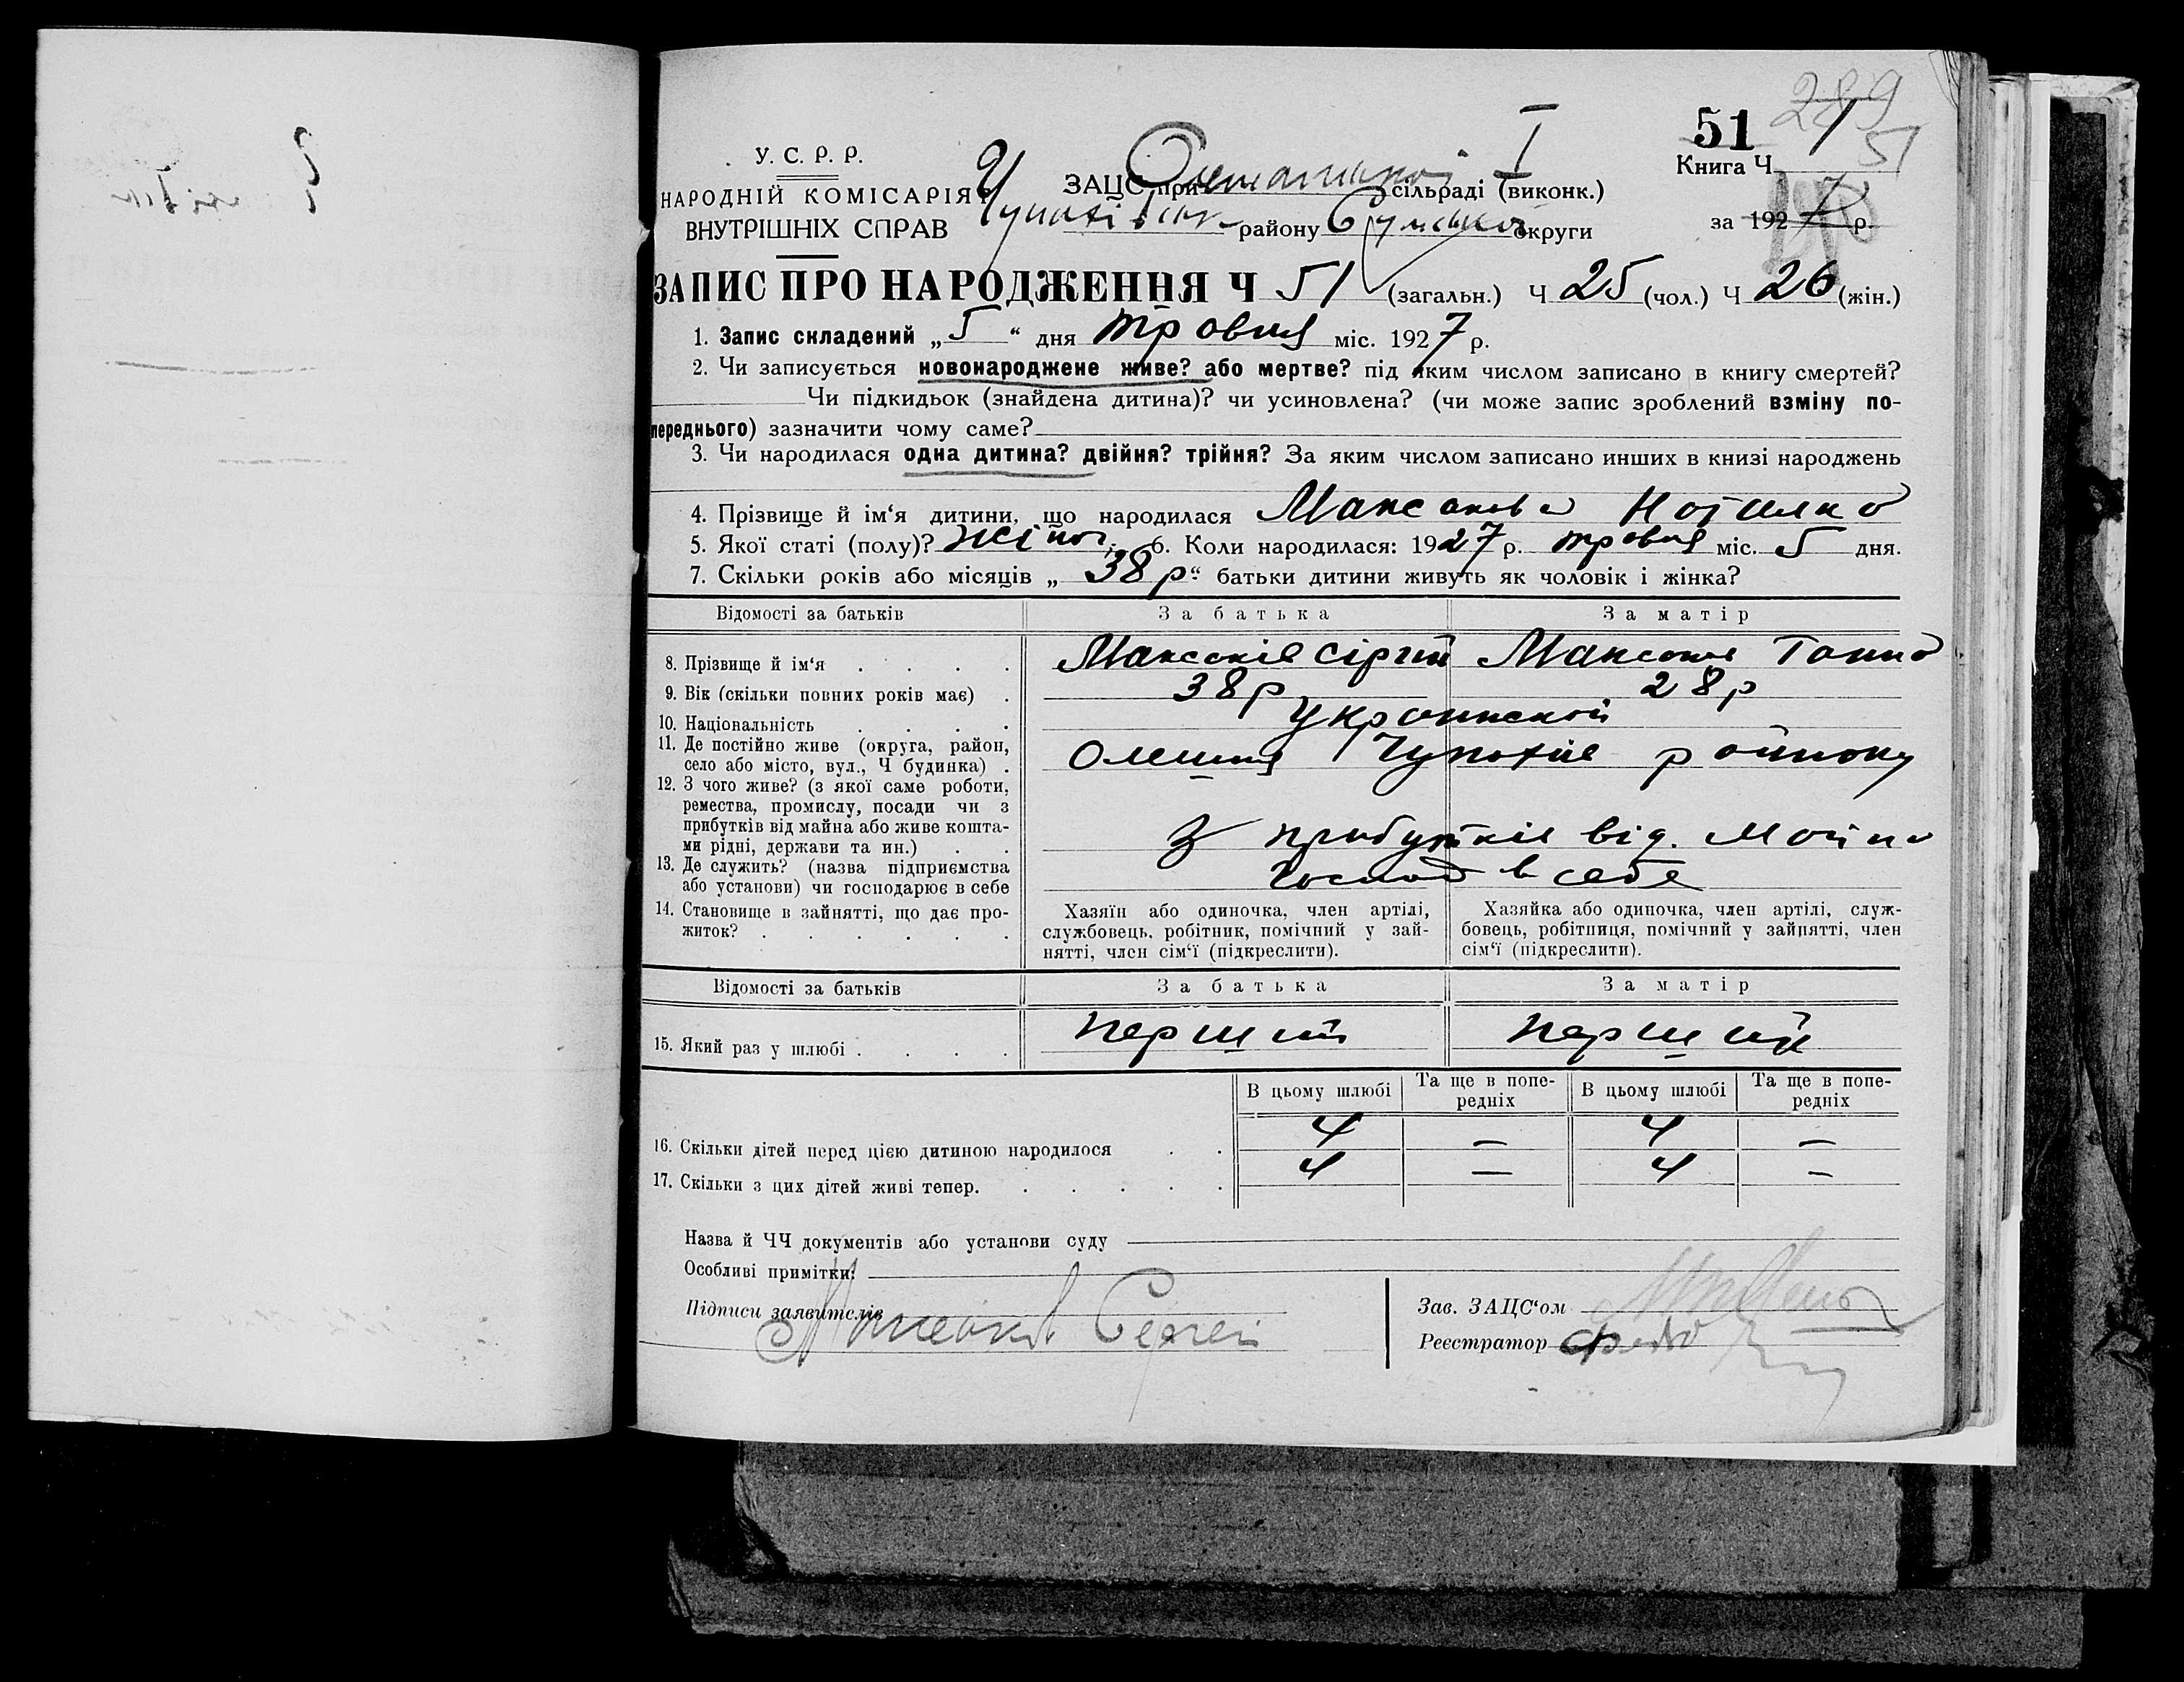 289
51
51
I
У. С. Р. Р.
НАРОДНІЙ КОМІСАРІЯТ
ВНУТРІШНІХ СПРАВ
ЗАЦС при сільраді (виконк.)
району Сумської округи
Книга Ч
за 1927 р.
ЗАПИС ПРО НАРОДЖЕННЯ Ч 51 (загальн.) Ч 25 (чол.) Ч 26 (жін.)
1. Запис складений „5“ дня травня міс. 1927 р.
2. Чи записується новонароджене живе? або мертве? під яким числом записано в книгу смертей?
Чи підкидьок (знайдена дитина)? чи усиновлена? (чи може запис зроблений взміну по-
переднього) зазначити чому саме?
3. Чи народилася одна дитина? двійня? трійня? За яким числом записано инших в книзі народжень
4. Прізвище й ім‘я дитини, що народилася Максакова Наталка
5. Якої статі (полу)? жіноч. 6. Коли народилася: 1927 р. травня міс. 5 дня.
7. Скільки років або місяців „38 р“ батьки дитини живуть як чоловік і жінка?
Відомості за батьків За батька За матір
8. Прізвище й ім‘я . . . . Максаків Сіргій Максакова Ганна
9. Вік (скільки повних років має) . 38 р 28 р
10. Національність . . . . Украинской
11. Де постійно живе (округа, район,
село або місто, вул., Ч будинка) . Олешня Чупахів району
12. З чого живе? (з якої саме роботи,
ремества, промислу, посади чи з
прибутків від майна або живе кошта-
ми рідні, держави та ин.) . . З прибутків від. Майна
13. Де служить? (назва підприємства
або установи) чи господарює в себе Господ в себе
14. Становище в зайнятті, що дає про-
житок? . . . . . .
Хазяїн або одиночка, член артілі,
службовець, робітник, помічний у зай-
нятті, член сім‘ї (підкреслити).
Хазяйка або одиночка, член артілі, служ-
бовець, робітниця, помічний у зайнятті, член
сім‘ї (підкреслити).
Відомості за батьків За батька За матір
15. Який раз у шлюбі . . . . перший перший
В цьому шлюбі Та ще в попе-
редніх В цьому шлюбі Та ще в попе-
редніх
16. Скільки дітей перед цією дитиною народилося . . 4 — 4 —
17. Скільки з цих дітей живі тепер. . . . . . 4 — 4 —
Назва й ЧЧ документів або установи суду
Особливі примітки:
Підписи заявителів Максаков Сергей
Зав. ЗАЦС‘ом
Реєстратор